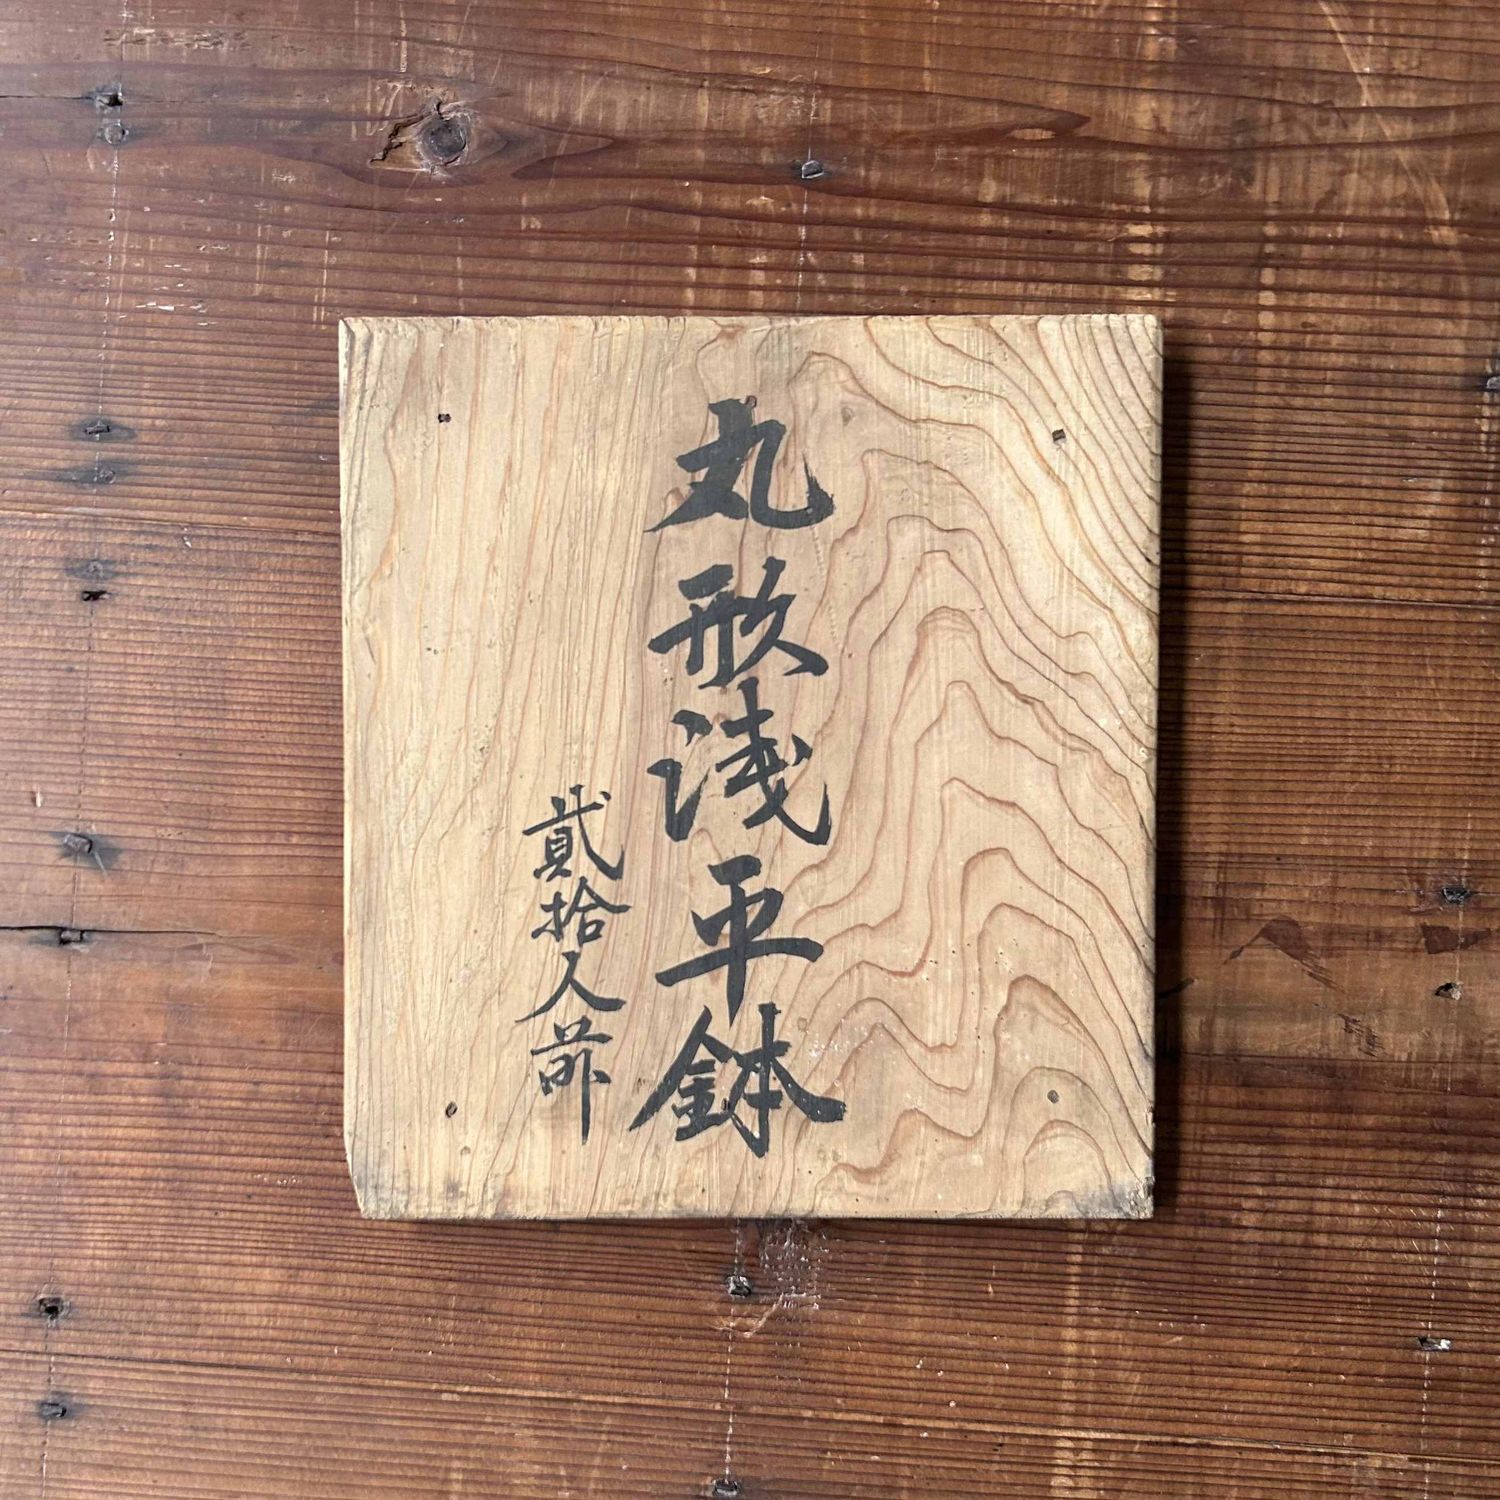 丸形浅平鉢
貮拾人前